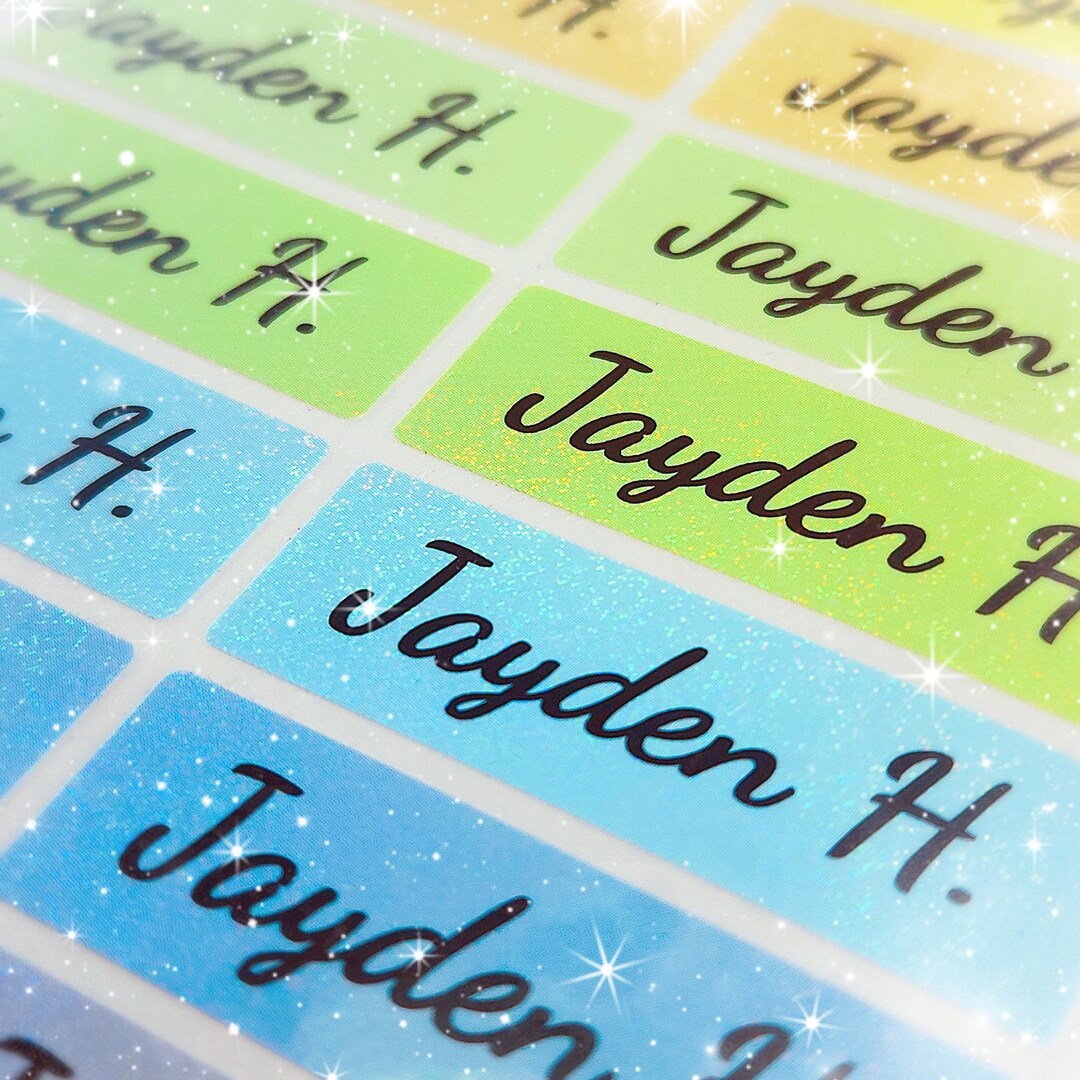 H.
Jayden H.
Jayde
Jayden H.
Jayden
Jayden H.
Jayden H
H.
Jayden H.
Jayden H